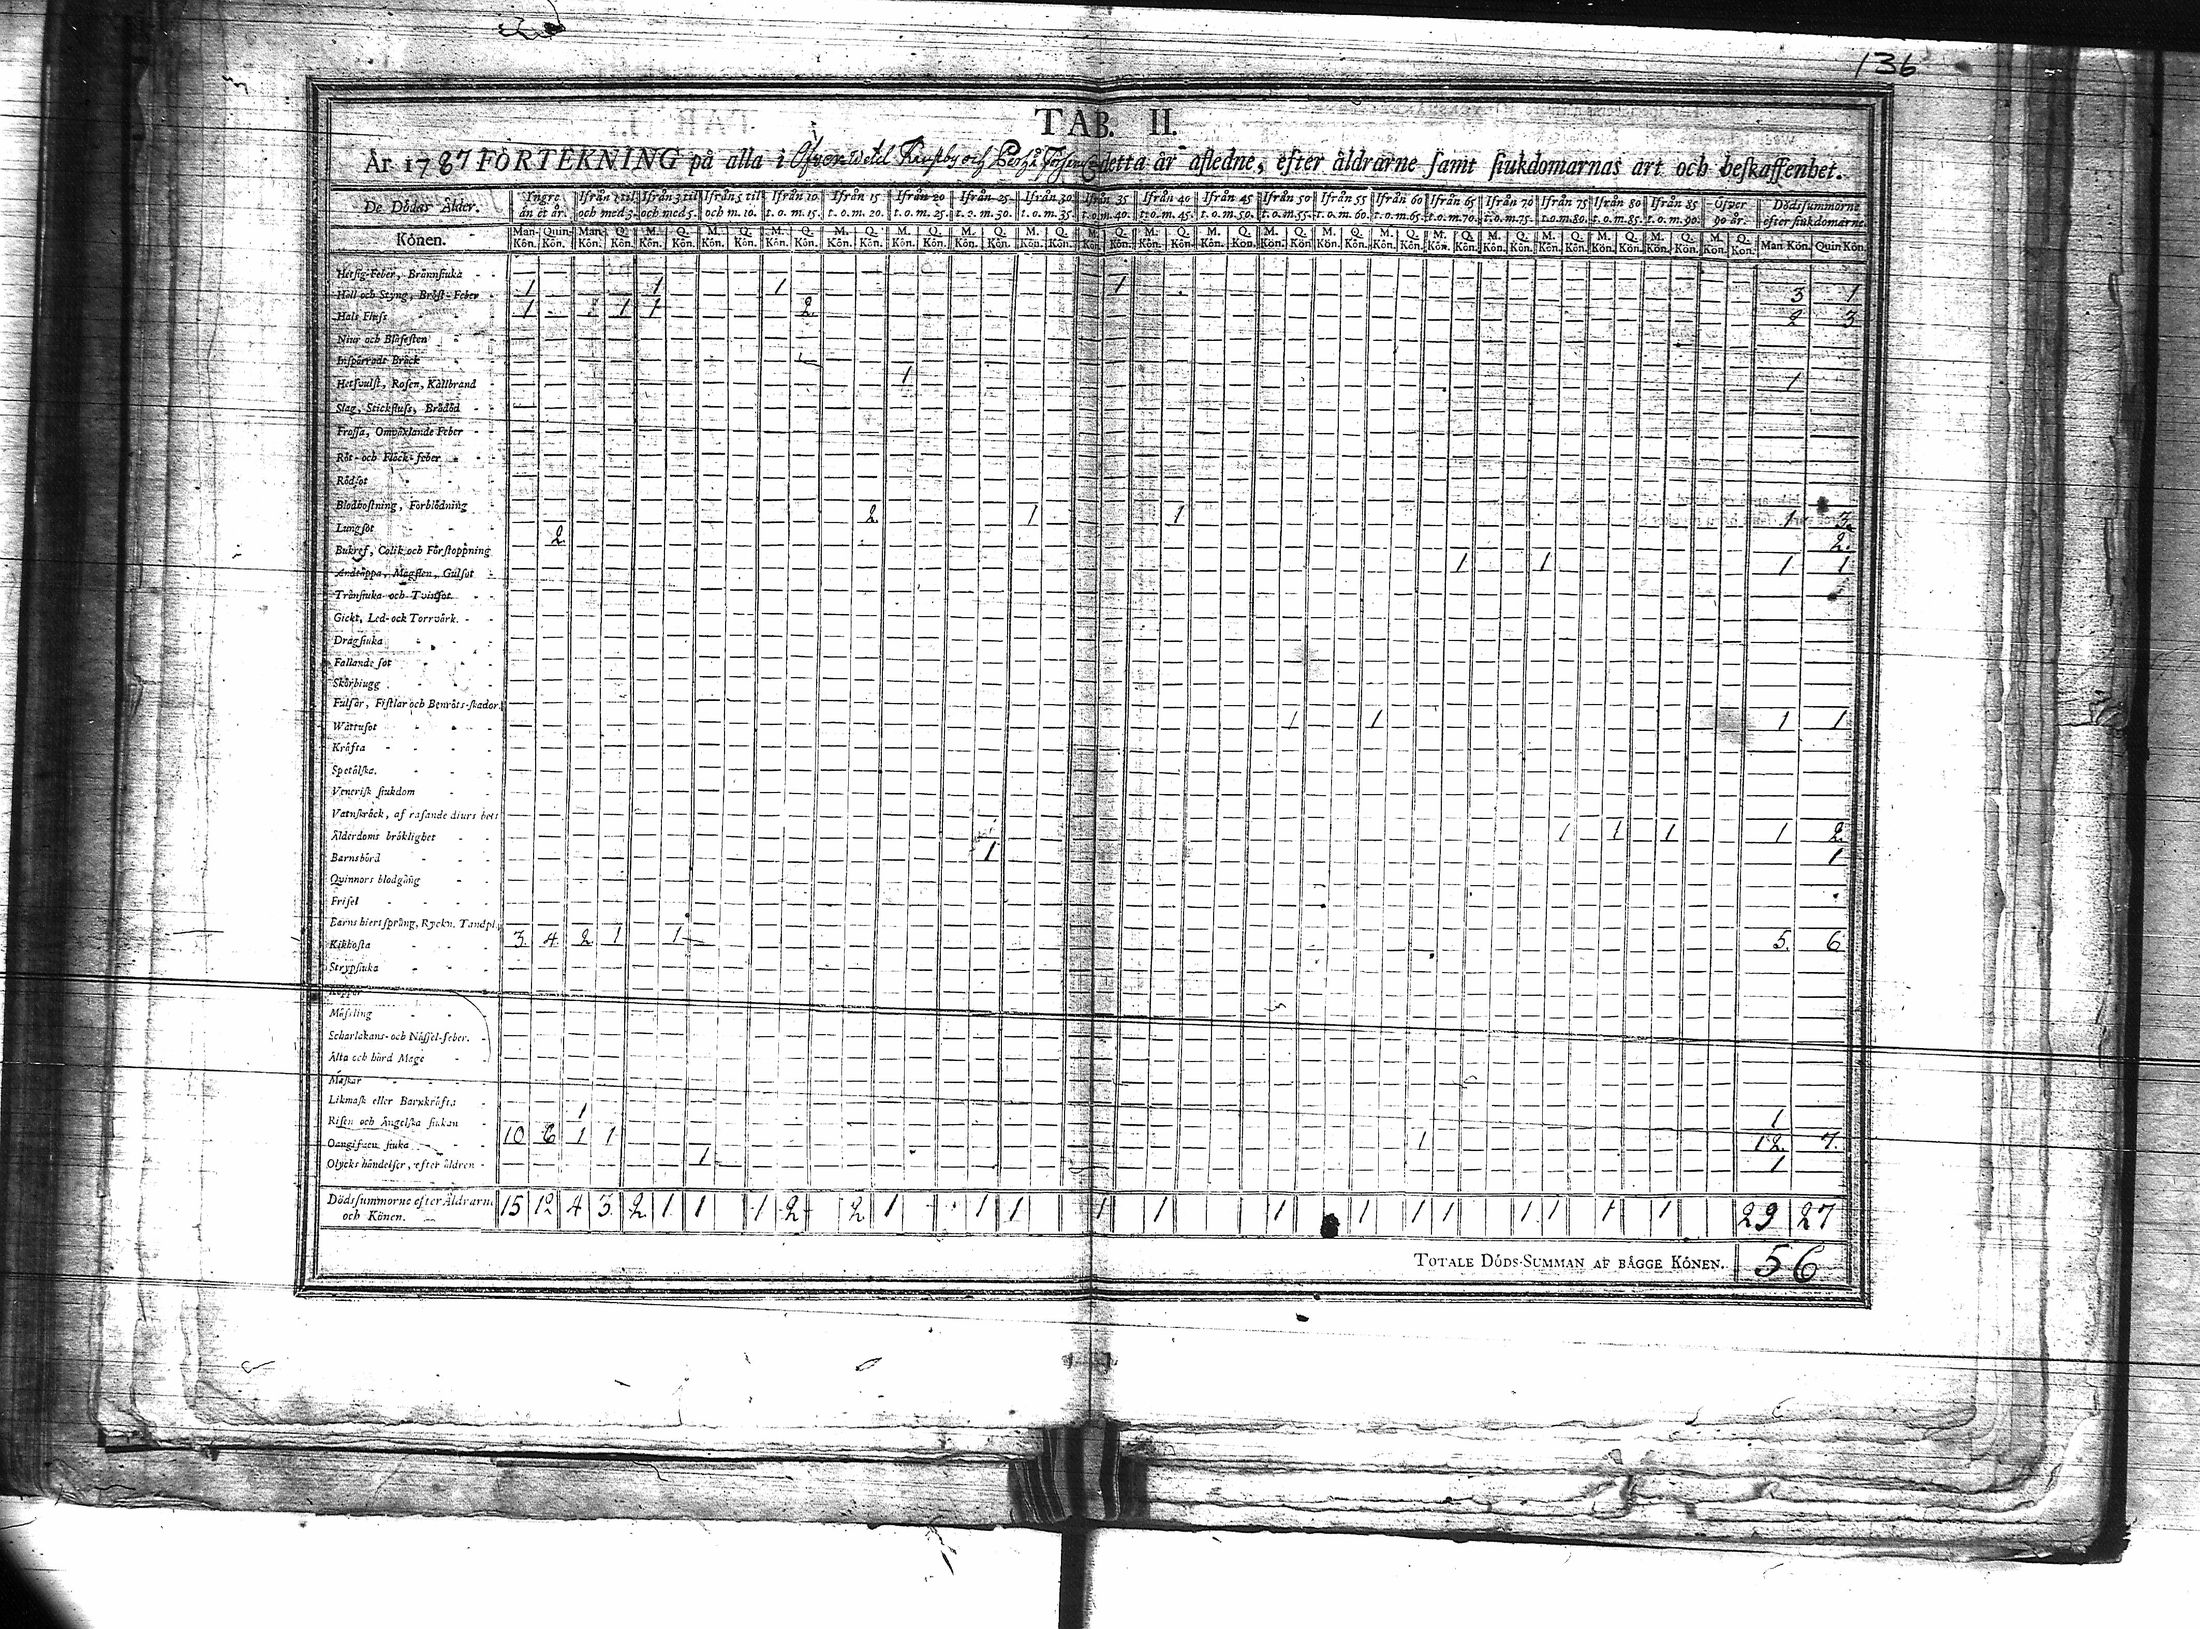 136
TAB. II.
År 1787 FÖRTEKNING på alla i Öfver och detta år afledne, efter åldrarne samt siukdomarnas art och beskaffenhet.
De Dödas Ålder. Yngre än et år. Ifrån 1 til och med 3. Ifrån 3 til och med 5. Ifrån 5 til och m. 10. Ifrån 10 t. o. m. 15. Ifrån 15 t. o. m. 20. Ifrån 20 t. o. m. 25. Ifrån 25 t. o. m. 30. Ifrån 30 t. o. m. 35. Ifrån 35 t. o. m. 40. Ifrån 40 t. o. m. 45. Ifrån 45 t. o. m. 50. Ifrån 50 t. o. m. 55. Ifrån 55 t. o. m. 60. Ifrån 60 t. o. m. 65. Ifrån 65 t. o. m. 70. Ifrån 70 t. o. m. 75. Ifrån 75 t. o. m. 80. Ifrån 80 t. o. m. 85. Ifrån 85 t. o. m. 90. Öfver 90 år. Dödssummorne efter siukdomarne.
Könen. Man Kön. Quin Kön. Man Kön. Q. Kön. M. Kön. Q. Kön. M. Kön. Q. Kön. M. Kön. Q. Kön. M. Kön. Q. Kön. M. Kön. Q. Kön. M. Kön. Q. Kön. M. Kön. Q. Kön. M. Kön. Q. Kön. M. Kön. Q. Kön. M. Kön. Q. Kön. M. Kön. Q. Kön. M. Kön. Q. Kön. M. Kön. Q. Kön. M. Kön. Q. Kön. M. Kön. Q. Kön. M. Kön. Q. Kön. M. Kön. Q. Kön. M. Kön. Q. Kön. M. Kön. Q. Kön. Man Kön. Quin Kön.
Hetsig-Feber, Brännsiuka
Håll och Styng, Bröst-Feber 1 1 1 1 3 1
Hals Fluss 1 1 1 2 2 3
Niur och Blåsesten
Inspärrade Bråck
Hetsvulst, Rosen, Kallbrand 1 1
Slag, Stickfluss, Brådöd
Frossa, Omväxlande Feber
Röt- och Fläck-feber
Rödsot
Blodhostning, Förblödning
Lungsot 2 1 1 1 3
Bukref, Colik och Förstoppning 2 2
Andtäppa, Magsten, Gulsot 1 1 1 1
Trånsiuka och Tvinsot
Gickt, Led- och Torrvärk.
Dragsiuka
Fallande sot
Skörbiugg
Fulsår, Fistlar och Benröts-skador
Wattusot 1 1 1 1
Kräfta
Spetälska.
Venerisk siukdom
Vatnskräck, af rasande diurs bett
Ålderdoms bräklighet 1 1 1 1 2
Barnsbörd 1 1
Quinnors blodgång
Frisel
Barns hiertsprång, Ryckn. Tandpl.
Kikhosta 3 4 2 1 1 5 6
Strypsiuka
Koppor
Mässling
Scharlakans- och Nässel-feber.
Älta och hård Mage
Maskar
Likmask eller Barnkräfta
Risen och Ängelska siukan 1 1
Oangifven siuka 10 6 1 1 1 12 7
Olycks händelser, efter åldren 1 1
Dödssummorne efter Åldrarne och Könen. 15 12 4 3 2 1 1 1 2 2 1 1 1 1 1 1 1 1 1 1 1 1 1 29 27
TOTALE DÖDS-SUMMAN AF BÄGGE KÖNEN. 56